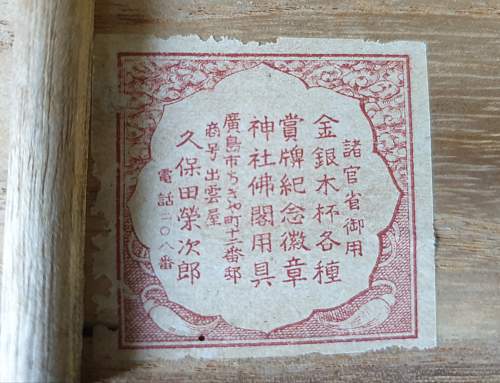 諸官省御用
金銀木杯各種
賞牌紀念徽章
神社佛閣用具
廣島市ちきや町十二番邸
商号出雲屋
久保田榮次郎
電話二〇八番